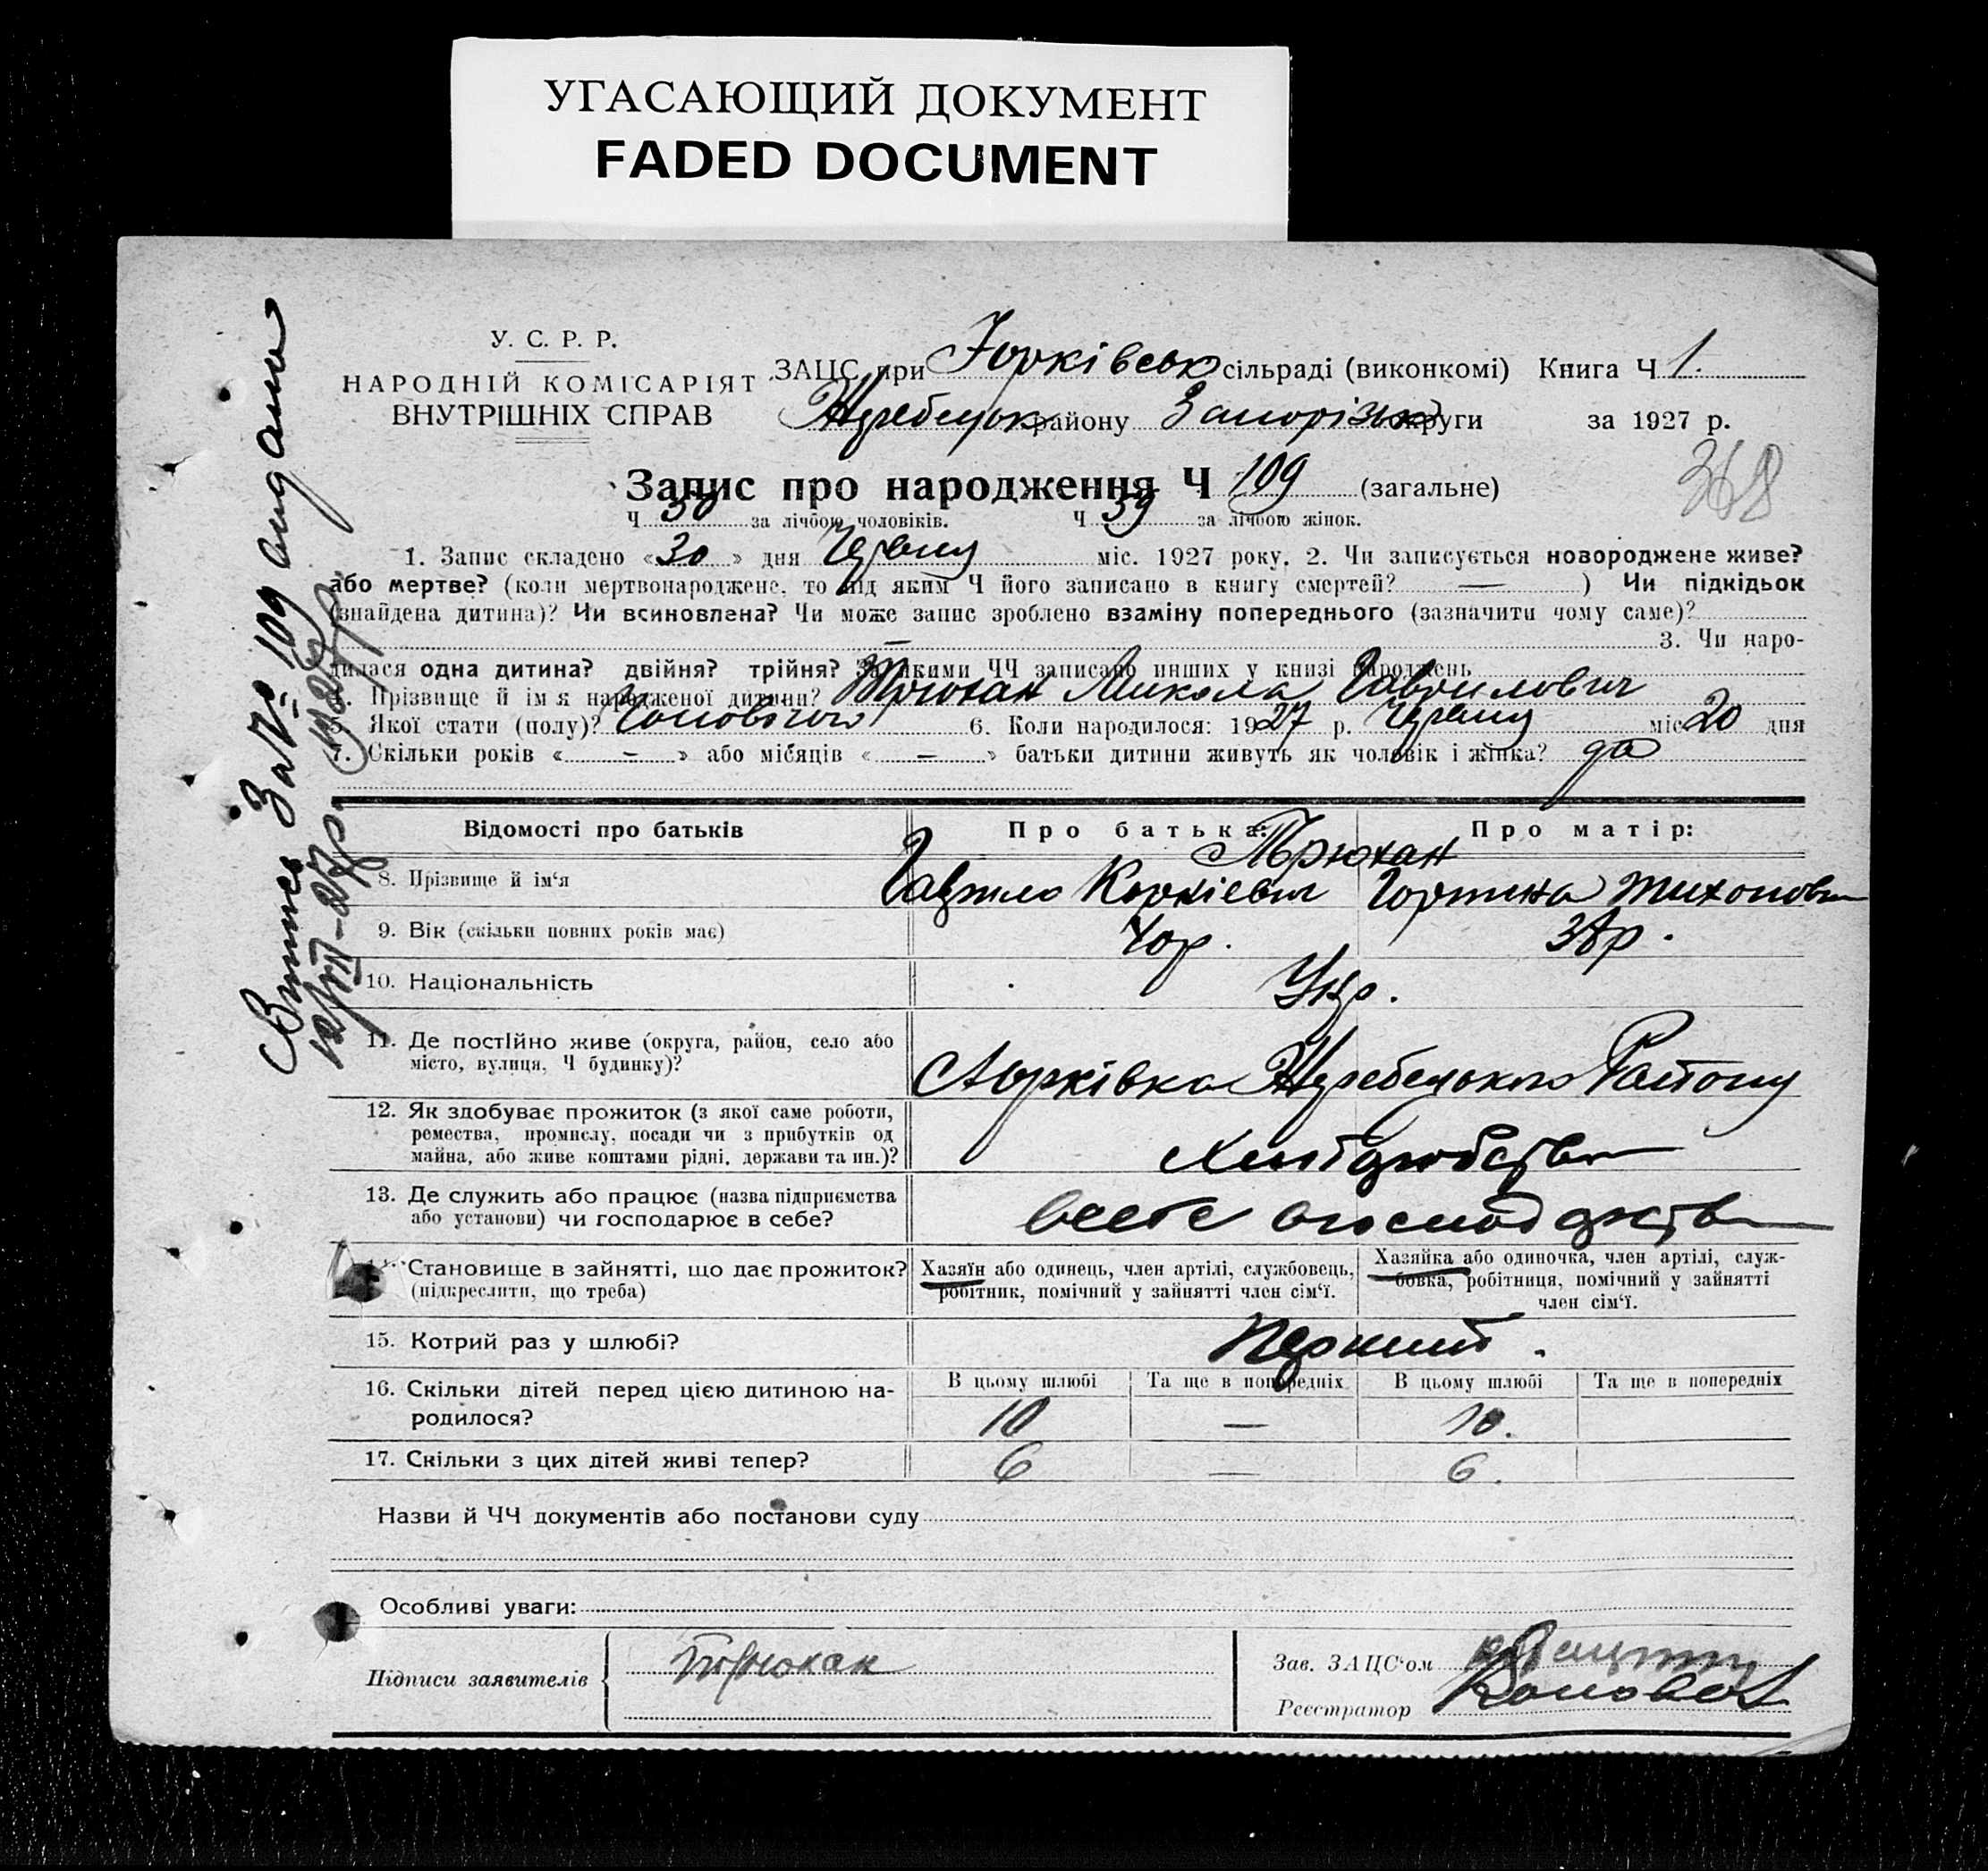 УГАСАЮЩИЙ ДОКУМЕНТ
FADED DOCUMENT
У. С. Р. Р.
НАРОДНІЙ КОМІСАРІЯТ
ВНУТРІШНІХ СПРАВ
ЗАЦС при Юрківськ сільраді (виконкомі) Книга Ч 1.
Жеребецьк району Запорізьк округи за 1927 р.
368
Запис про народження Ч 109 (загальне)
Ч 50 за лічбою чоловіків. Ч 59 за лічбою жінок.
1. Запис складено «30» дня Червня міс. 1927 року. 2. Чи записується новороджене живе?
або мертве? (коли мертвонароджене, то під яким Ч його записано в книгу смертей? — ) Чи підкідьок
(знайдена дитина)? Чи всиновлена? Чи може запис зроблено взаміну попереднього (зазначити чому саме)?
3. Чи наро-
дилася одна дитина? двійня? трійня? За якими ЧЧ записано инших у книзі народжень
4. Прізвище й ім'я народженої дитини? Трюхан Микола Гаврилович
5. Якої стати (полу)? 6. Коли народилося: 1927 р. Червня міс 20 дня
7. Скільки років « – » або місяців « – » батьки дитини живуть як чоловік і жінка? да
Відомості про батьків Про батька: Про матір:
Трюхан
8. Прізвище й ім'я Гаврило Горпина Тихоновн
9. Вік (скільки повних років має) 40р. 38р.
10. Національність Укр.
11. Де постійно живе (округа, район, село або
місто, вулиця, Ч будинку)? Юрківка Жеребецького Району
12. Як здобуває прожиток (з якої саме роботи,
ремества, промислу, посади чи з прибутків од
майна, або живе коштами рідні, держави та ин.)? Хліборобство
13. Де служить або працює (назва підприємства
або установи) чи господарює в себе?
14. Становище в зайнятті, що дає прожиток?
(підкреслити, що треба)
Хазяїн або одинець, член артілі, службовець,
робітник, помічний у зайнятті член сім'ї.
Хазяйка або одиночка, член артілі, служ-
бовка, робітниця, помічний у зайнятті
член сім'ї.
15. Котрий раз у шлюбі? Перший.
16. Скільки дітей перед цією дитиною на-
родилося?
В цьому шлюбі Та ще в попередніх В цьому шлюбі Та ще в попередніх
10 — 10.
17. Скільки з цих дітей живі тепер? 6 — 6.
Назви й ЧЧ документів або постанови суду
Особливі уваги:
Підписи заявителів Трюхан
Зав. ЗАЦС'ом
Реєстратор
Витяг За № 109 видано